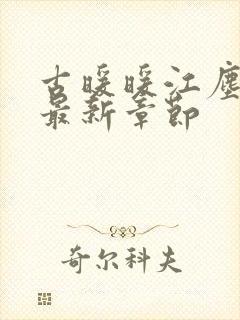 古暖暖江尘
最新章节
奇尔科夫